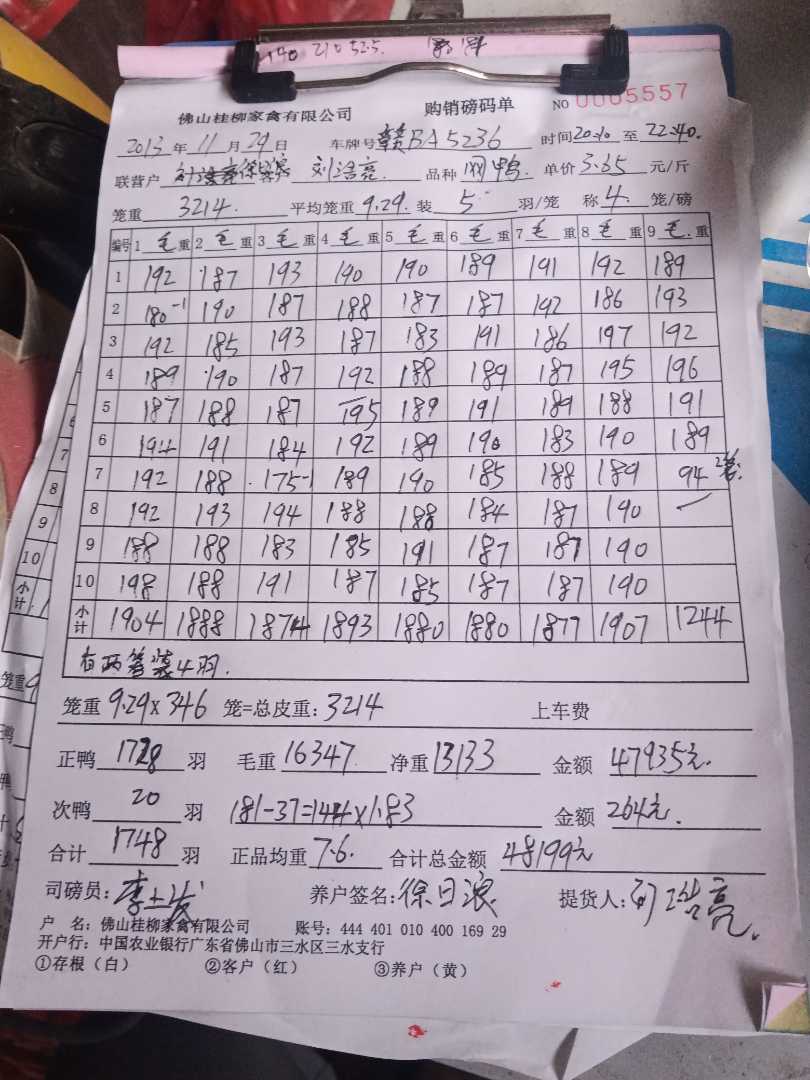 佛山桂柳家禽有限公司 购销磅码单 NO 0005557
2013年11月29日 车牌号 赣BA5236 时间20:10至22:40.
联营户 刘浩亮. 品种 网鸭. 单价3.65元/斤
笼重 3214. 平均笼重9.29. 装 5 羽/笼 称 4. 笼/磅
编号 1 毛 重 2 毛 重 3 毛 重 4 毛 重 5 毛 重 6 毛 重 7 毛 重 8 毛 重 9 毛 重
1 192 187 193 190 190 189 191 192 189
2 180-1 190 187 188 187 187 192 186 193
3 192 185 193 187 183 191 186 197 192
4 189 190 187 192 188 189 187 195 196
5 187 188 187 195 189 191 189 188 191
6 194 191 184 192 189 190 183 190 189
7 192 188 175-1 189 190 185 188 189 94
8 192 193 194 188 188 184 187 190
9 188 188 183 185 191 187 187 190
10 198 188 191 187 185 187 187 190
小计 1904 1888 1874 1893 1880 1880 1877 1907 1244
有两笼装4羽.
笼重 9.29x346 笼=总皮重:3214 上车费
正鸭 1728 羽 毛重 16347 净重 13133 金额 47935元.
次鸭 20 羽 181-37=144x1.83 金额 264元.
合计 1748 羽 正品均重 7.6. 合计总金额 48199元
司磅员: 养户签名:徐日浪 提货人:刘浩亮.
户 名:佛山桂柳家禽有限公司 账号:444 401 010 400 169 29
开户行:中国农业银行广东省佛山市三水区三水支行
①存根(白) ②客户(红) ③养户(黄)